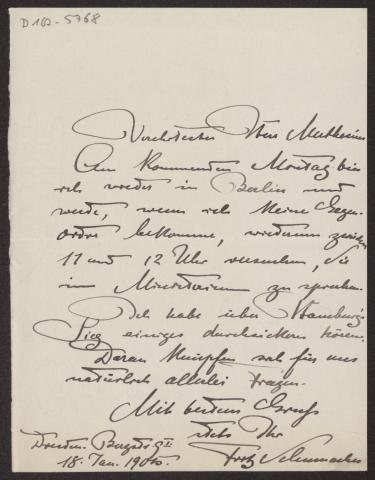 D 102-5768
Verehrtester Herr Muthesius
Am kommenden Montag bin
ich wieder in Berlin und
werde, wenn ich keine Gegen-
ordre bekomme, wiederum zwischen
11 und 12 Uhr versuchen, Sie
im Ministerium zu sprechen.
Ich habe über Hamburgs
Sieg einiges durchsickern hören.
Daran knüpfen sich für uns
natürlich allerlei Fragen.
Mit bestem Gruß
stets Ihr
Fritz Schumacher
Dresden.
18. Jan. 190